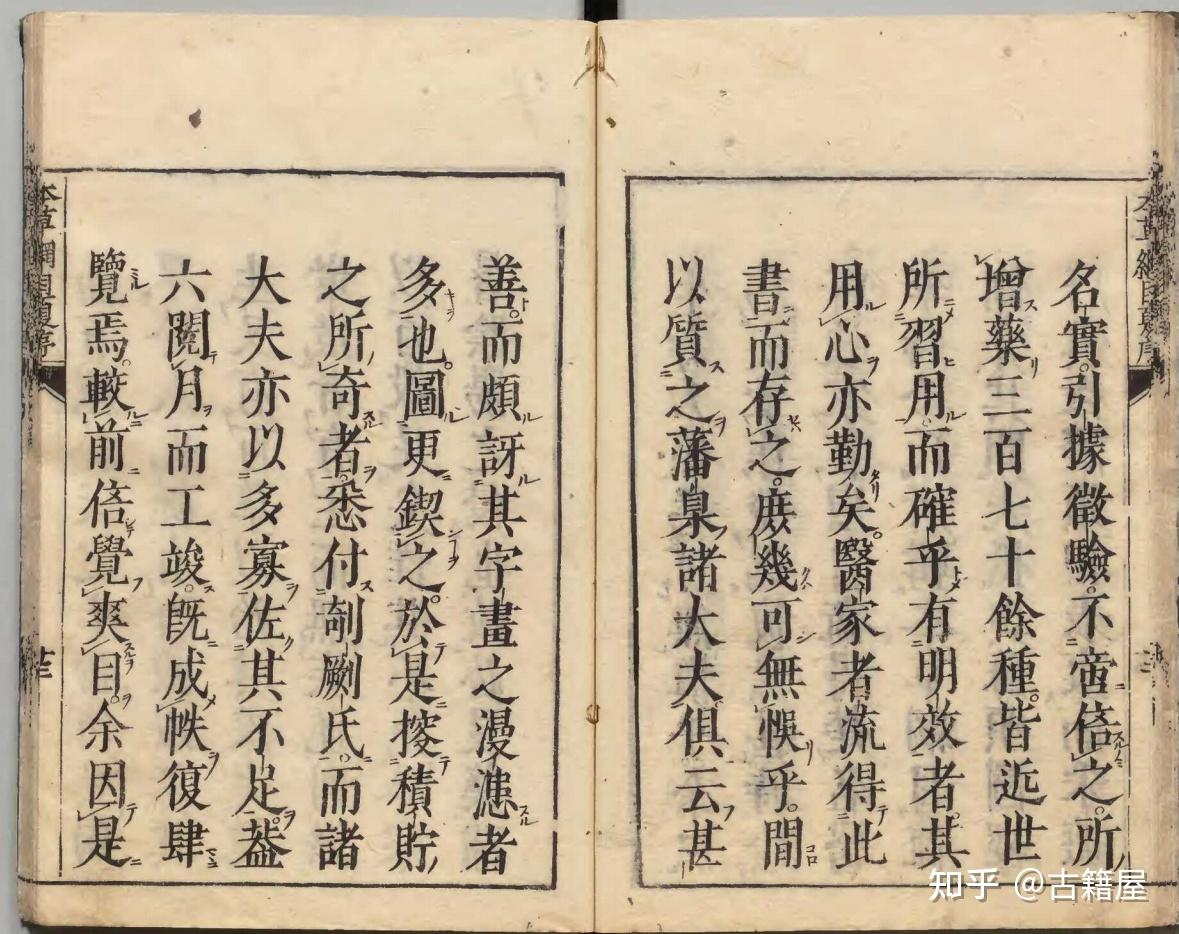 名實引據徵驗不啻倍之所
增藥三百七十餘種皆近世
所習用而確乎有明效者其
用心亦勤矣醫家者流得此
書而存之庶幾可無悞乎間
以質之藩臬諸大夫俱云甚
善而頗訝其字畫之漫漶者
多也圖更鍥之於是搾積貯
之所奇者悉付剞劂氏而諸
大夫亦以多寡佐其不足葢
六閱月而工竣既成帙復肆
覽焉較前倍覺爽目余因是
知乎 @古籍屋